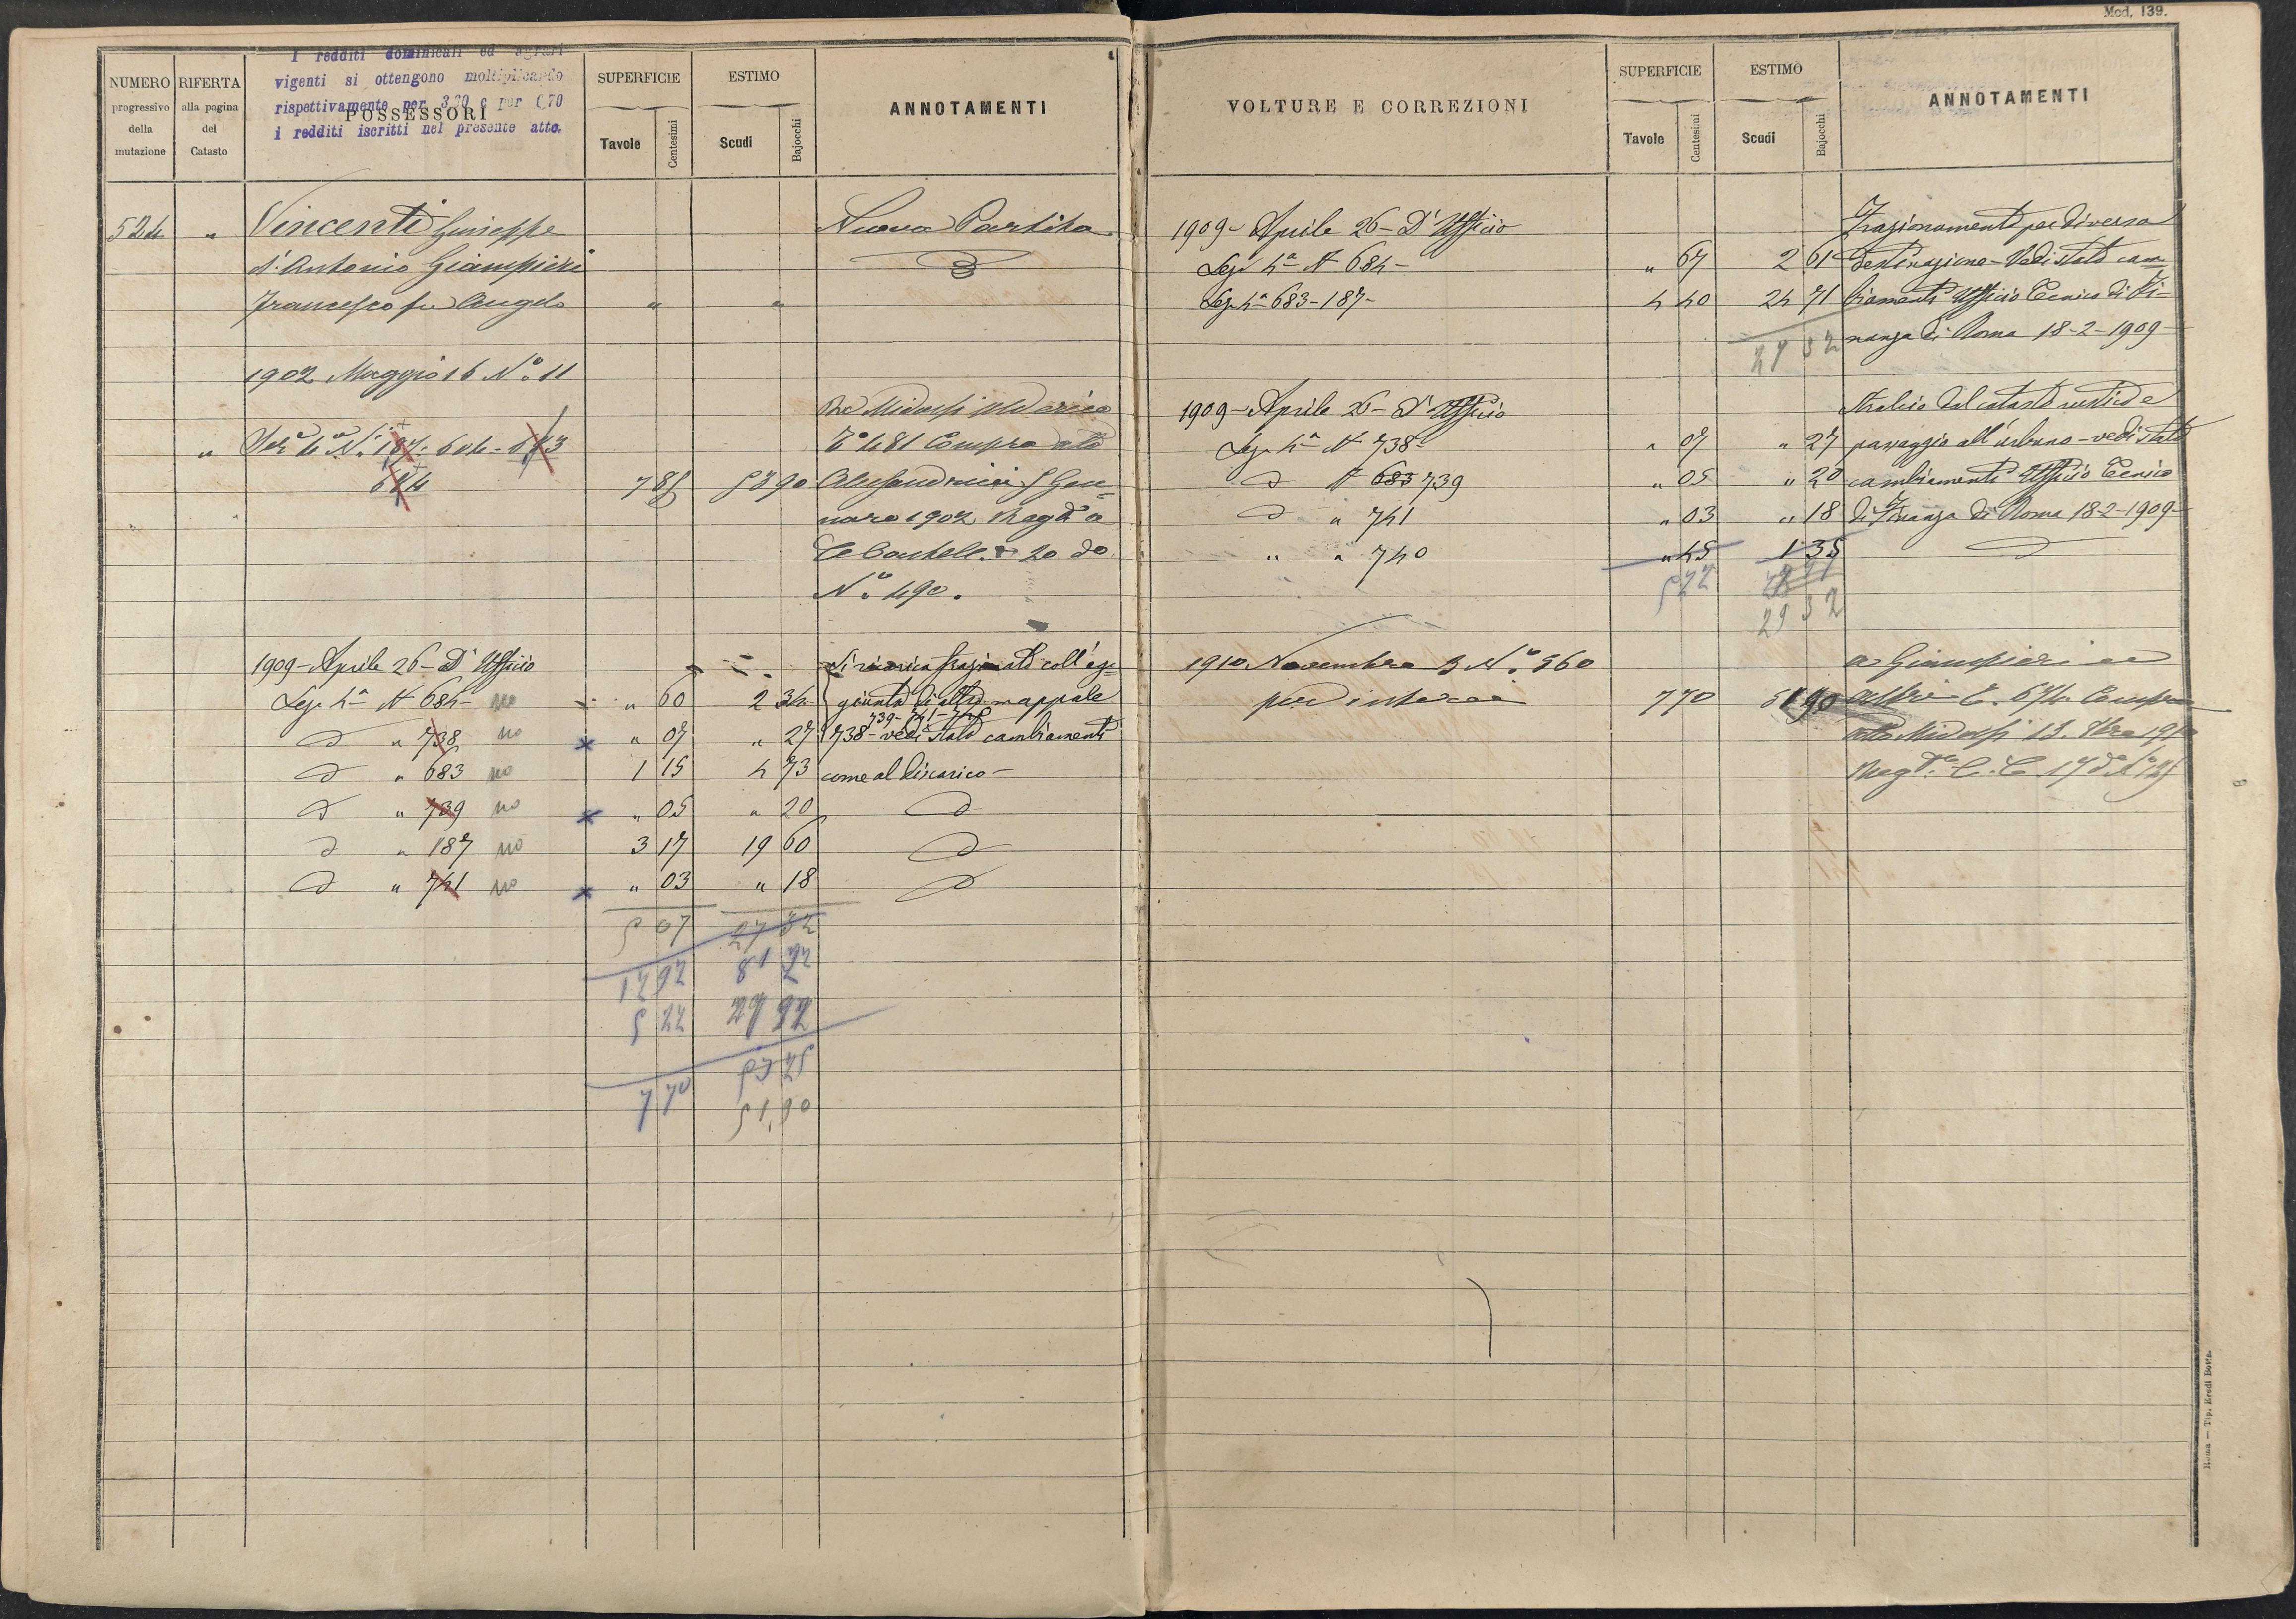 Mod. 139.
NUMERO progressivo della mutazione
RIFERTA alla pagina del Catasto
I redditi dominicali ed agrari
vigenti si ottengono moltiplicando
rispettivamente per 3,60 e per 0,70
i redditi iscritti nel presente atto.
POSSESSORI
SUPERFICIE
Tavole Centesimi
ESTIMO
Scudi Bajocchi
ANNOTAMENTI
524 " Vincenti Giuseppe Nuova Partita
d'Antonio Giampieri
Francesco fu Angelo " "
1902 Maggio 16 N.° 11
Da Midossi Alderico
" Sez.e 4a N.i 187- 604- 683 T.° 481 Compra atto
684 7 85 53 90 Alessandrini 5 Gen=
naro 1902 Reg.to a
C. Castell. 20 do
N.° 490.
1909- Aprile 26- D'Ufficio Si ricarica frazionato coll'ag=
Sez. 4a N 684- no " 60 2 34 giunta di altro mappale
739- 741- 740
D " 738 no × " 07 " 27 738- vedi stato cambiamenti
D " 683 no 1 15 4 73 come al discarico-
D " 739 no × " 05 " 20 D
D " 187 no 3 17 19 60 D
D " 741 no × " 03 " 18 D
5 07 27 32
12 92 81 22
5 22
7 70
51,90
VOLTURE E CORREZIONI
SUPERFICIE
Tavole Centesimi
ESTIMO
Scudi Bajocchi
ANNOTAMENTI
1909- Aprile 26- D'Ufficio Frazionamento per diversa
Sez. 4a N 684- " 67 2 61 destinazione- Vedi stato cam=
Sez. 4a 683- 187- 4 40 24 71 biamenti Ufficio Tecnico di Fi=
27 32 nanza di Roma 18-2-1909-
1909- Aprile 26- D'Ufficio Stralcio dal catasto rustico e
Sez. 4a N 738- " 07 " 27 passaggio all'urbano- vedi stato
D N 683 739 " 05 " 20 cambiamenti Ufficio Tecnico
D " 741 " 03 " 18 di Finanza di Roma 18-2-1909-
" " 740 " 45 1 35 D
5 22
29 32
1910 Novembre 3 N.° 560 a Giampieri ed
per intero 7 70 51 90 altri T. 674 Compra
atto Midossi 13. 1910
Reg.to C. C. 17 d.°
Roma — Tip. Eredi Botta.